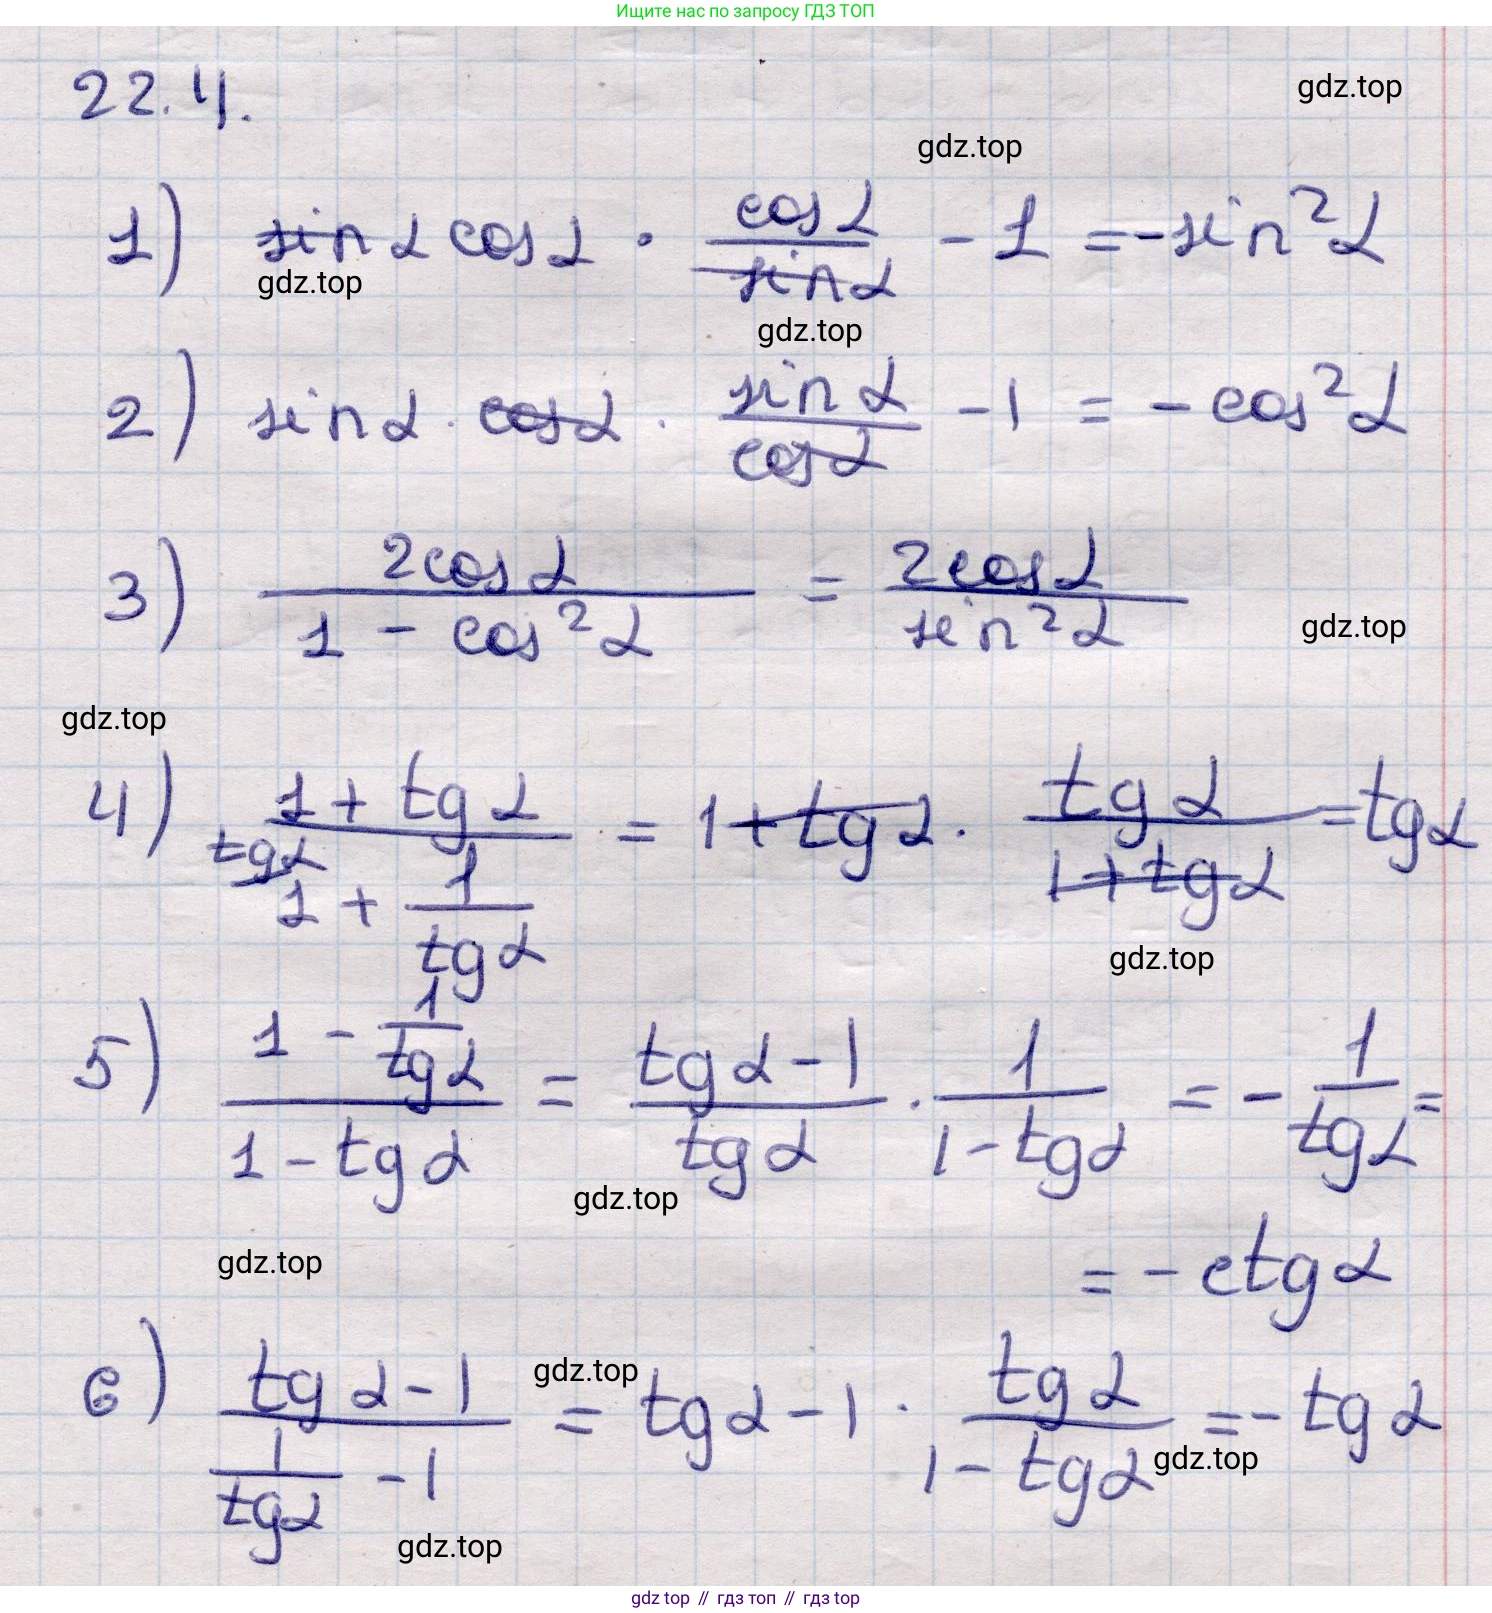 Ищите нас по запросу ГДЗ ТОП
22.4.
gdz.top
gdz.top
1) sin α cos α · cos α / sin α - 1 = - sin² α
gdz.top
gdz.top
2) sin α · cos α · sin α / cos α - 1 = - cos² α
3) 2cos α / 1 - cos² α = 2cos α / sin² α
gdz.top
gdz.top
4) 1 + tg α / tg α 1 + 1 / tg α = 1 + tg α · tg α / 1 + tg α = tg α
gdz.top
5) 1 - 1 / tg α / 1 - tg α = tg α - 1 / tg α · 1 / 1 - tg α = - 1 / tg α =
gdz.top
gdz.top
= - ctg α
6) tg α - 1 / 1 / tg α - 1 = tg α - 1 · tg α / 1 - tg α = - tg α
gdz.top
gdz.top
gdz.top
gdz top // гдз топ // гдз top